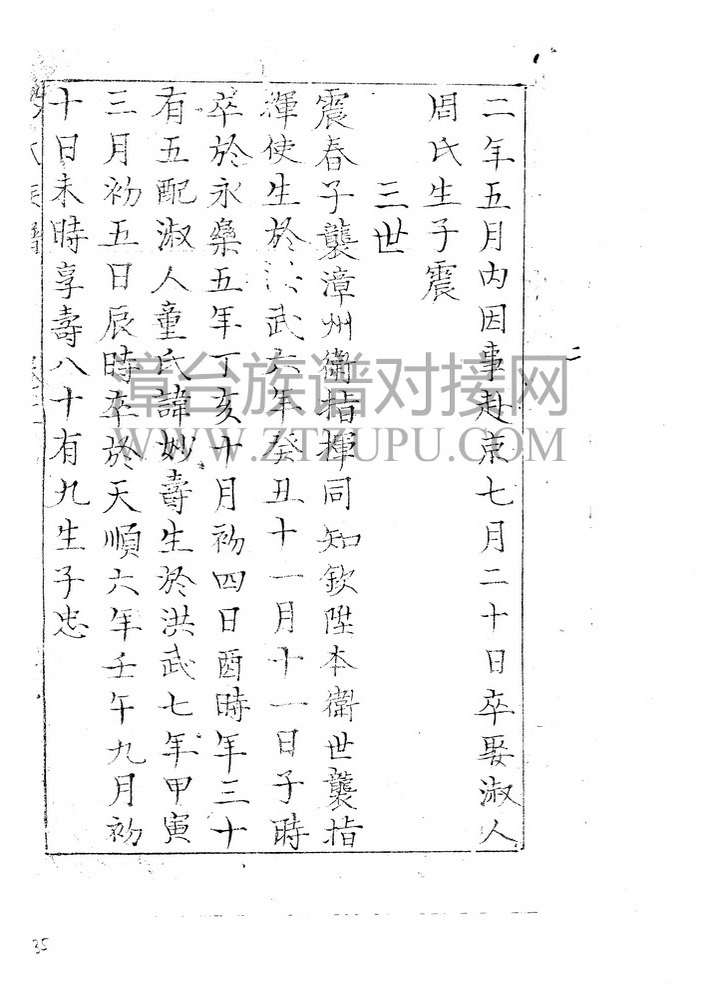 二年五月内因事赴京七月二十日卒娶淑人
周氏生子震
三世
震春子襲漳州衛指揮同知欽陞本衛世襲指
揮使生於洪武六年癸丑十一月十一日子時
卒於永樂五年丁亥十月初四日酉時年三十
有五配淑人童氏諱妙壽生於洪武七年甲寅
三月初五日辰時卒於天順六年壬午九月初
十日未時享壽八十有九生子忠
二
漳台族谱对接网
WWW.ZTZUPU.COM
35